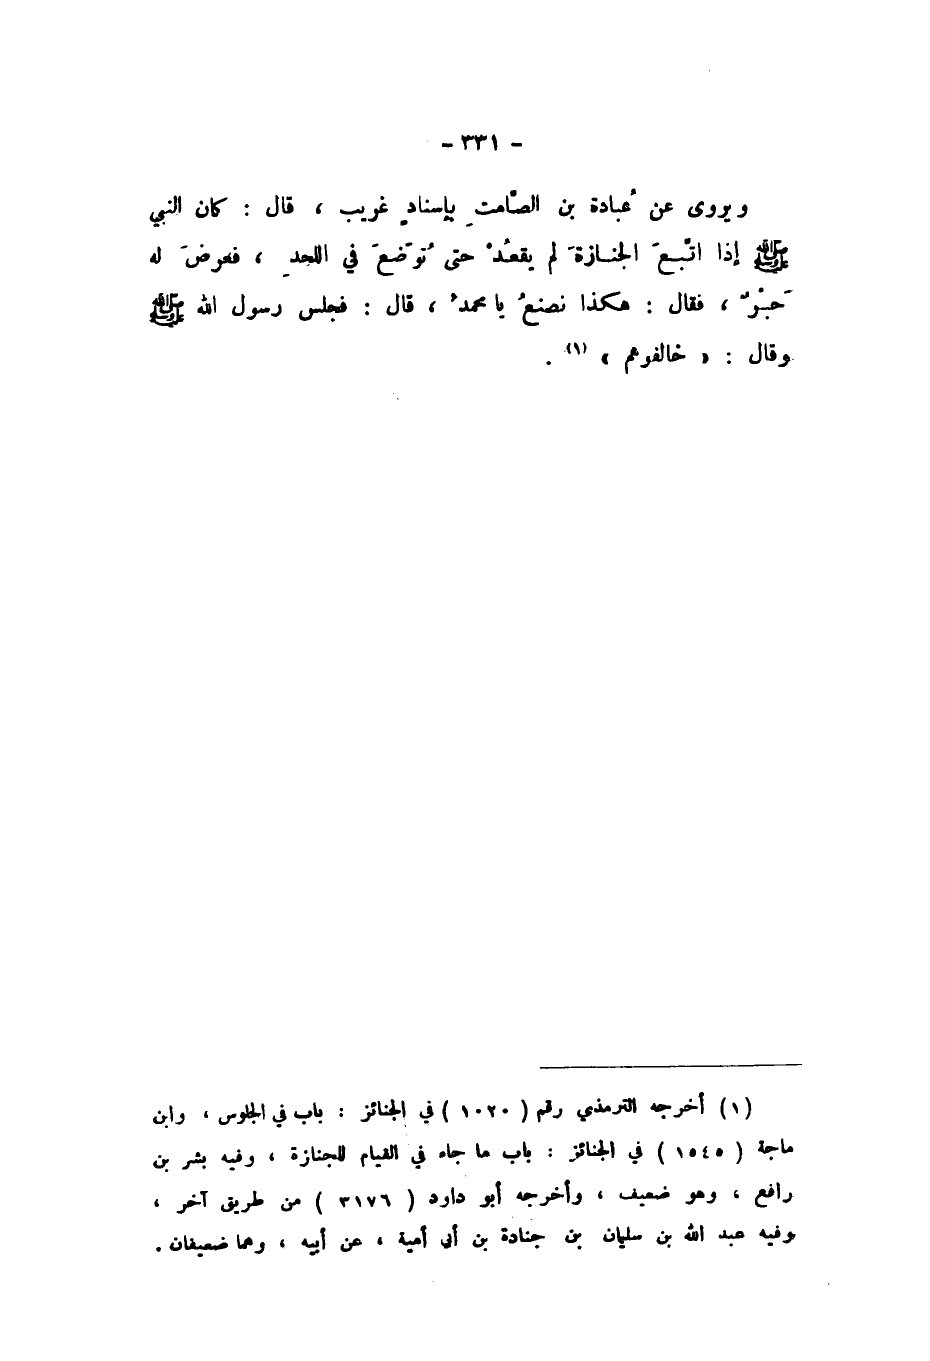 - ٣٣١ -
ويروى عن عُبادة بن الصَّامتِ بإسنادٍ غريب ، قال : كان النبي
ﷺ إذا اتَّبعَ الجنازةَ لم يقعُدْ حتى تُوضَعَ في اللحدِ ، فعرضَ له
حَبْرٌ ، فقال : هكذا نصنعُ يا محمدُ ، قال : فجلس رسول الله ﷺ
وقال : « خالفوهم » (١) .
(١) أخرجه الترمذي رقم ( ١٠٢٠ ) في الجنائز : باب في الجلوس ، وابن
ماجة ( ١٥٤٥ ) في الجنائز : باب ما جاء في القيام للجنازة ، وفيه بشر بن
رافع ، وهو ضعيف ، وأخرجه أبو داود ( ٣١٧٦ ) من طريق آخر ،
وفيه عبد الله بن سليمان بن جنادة بن أبي أمية ، عن أبيه ، وهما ضعيفان .